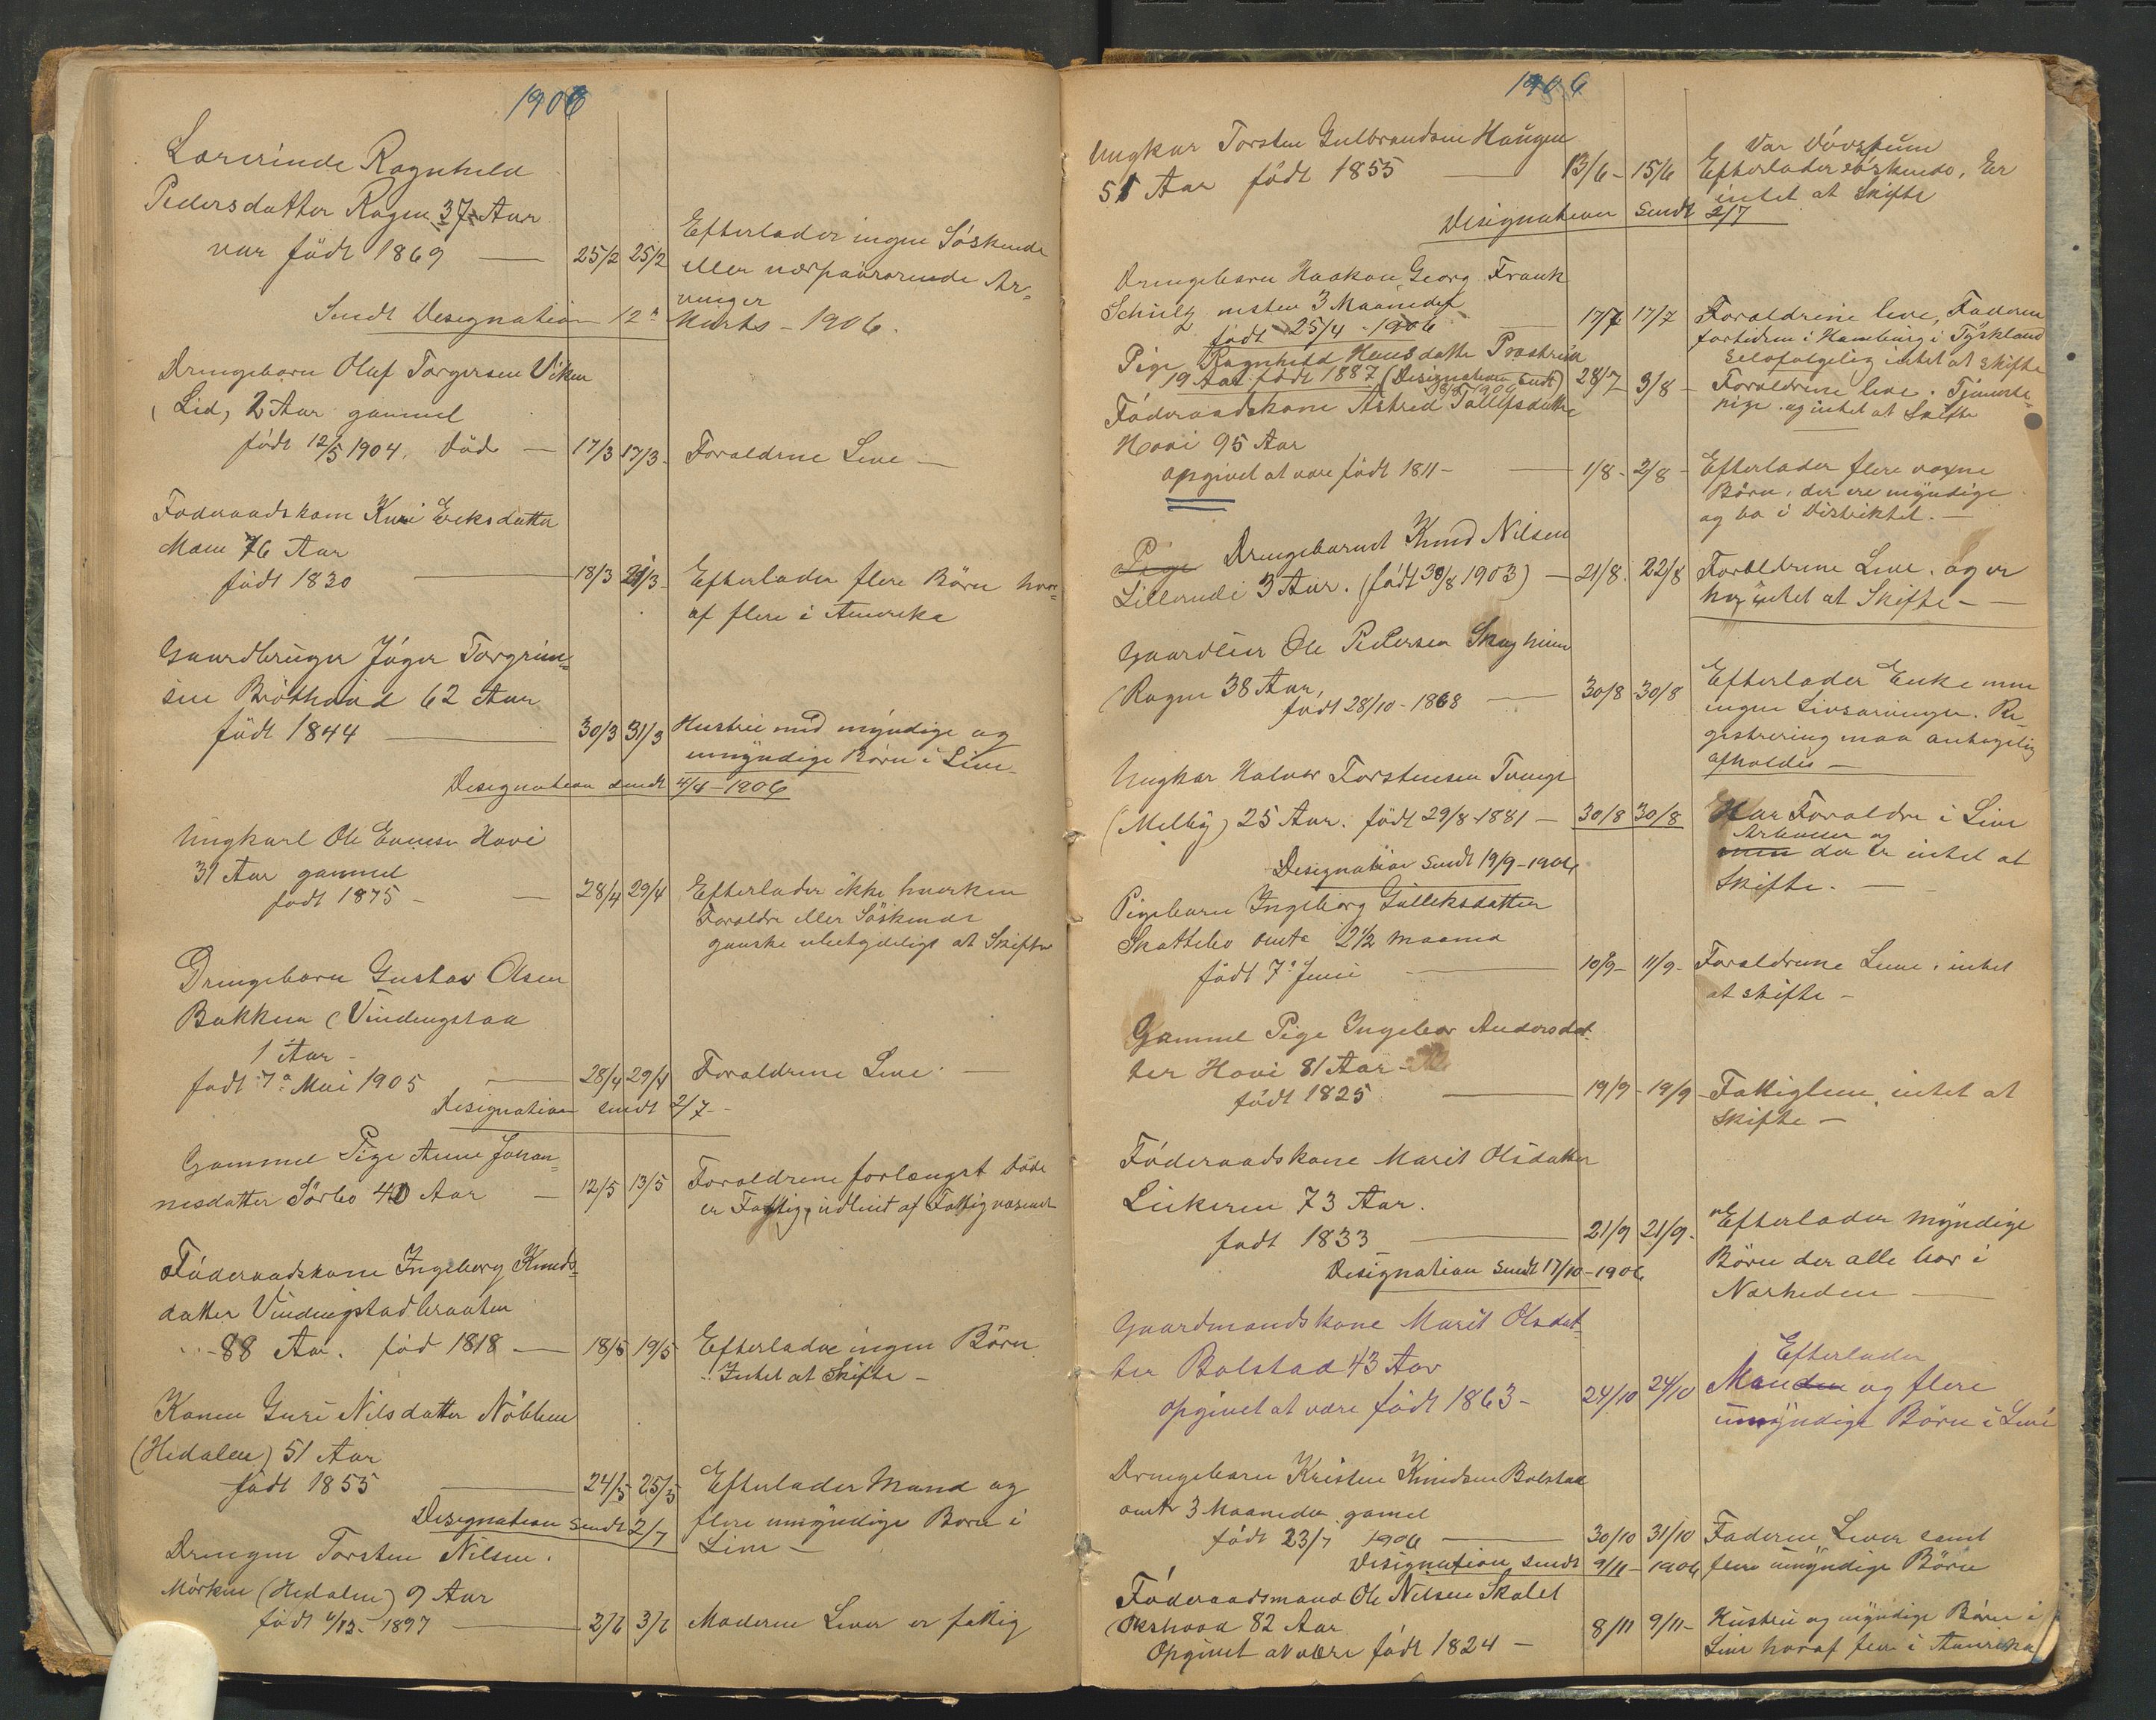 1906
Lærerinde Ragnhild
Pedersdatter Rogne 37 Aar
var født 1869 — 25/2 25/2 Efterlader ingen Söskende
eller nærpaarørende Ar-
vinger
Sendt Designation 12te Marts - 1906.
Drengebarn Oluf Torgersen Viken
(Lid, 2 Aar gammel
født 12/5 1904. Död — 17/3 17/3 - Forældrene Leve —
Föderaadskone Kari Eriksdatter
Moen 76 Aar
født 1830 — 18/3 21/3 - Efterlader flere Börn hvor-
af flere i Amerika
Gaardbruger Jöger Torgrim-
sen Bröthovd 62 Aar
født 1844 — 30/3 31/3 Hustru med myndige og
umyndige Börn i Live -
Designation sendt 4/4 - 1906
Ungkarl Ole Hovi
31 Aar gammel
født 1875 - — 28/4 29/4 Efterlader ikke hverken
Forældre eller Söskende
ganske ubetydeligt at Skifte
Drengebarn Gustav Olsen
Bakken (Vindingstad
1 Aar -
født 7de Mai 1905 — 28/4 29/4 Forældrene Leve. —
Designation sendt 2/7 -
Gammel Pige Anne Johan-
nesdatter Sörbo 40 Aar — 12/5 13/5 Forældrene forlængst döde
er Fattig, af Fattigvæsenet
Föderaadskone Ingeborg Knuds-
datter Vindingstadbraaten
- 88 Aar. fød 1818 — 18/5 19/5 Efterlader ingen Börn
Intet at Skifte -
Konen Guri Nilsdatter Nöbben
(Hedalen) 51 Aar
født 1855 — 24/5 25/5 Efterlader Mand og
flere umyndige Born i
Designation sendt 2/7 Live -
Drengen Torsten Nilsen.
Mörken (Hedalen) 9 Aar
født 1897 — 2/6 3/6 Moderen Lever er fattig
1906
Ungkar Torsten Gulbrandsen Haugen
51 Aar født 1855 — 13/6 - 15/6 Var Dövstum
Efterlader söskende, Er
intet at Skifte
Designation Sendt 2/7
Drengebarn Haakon Georg Frank
Schulz næsten 3 Maaneder
født 25/4 - 1906 — 17/7 17/7 Forældrene leve, Faderen
fortiden i Hamburg i Tyskland
selvfølgelig intet at skifte
Pige Ragnhild Hansdatter
19 Aar født 1887 (Designation sendt) 28/7 3/8 - Forældrene leve. Tjeneste-
pige og intet at Skifte
Föderaadskone Astrid Tollefsdatter
Hovi 95 Aar
opgivet at være født 1811 - — 1/8 - 2/8 - Efterlader flere voxne
Börn, der ere myndige
og bo i Distriktet. —
Pige Drengebarnet Knud Nilsen
3 Aar. (født 30/8 1903) — 21/8. 22/8 Forældrene Leve. og er
her intet at Skifte - —
Gaardeier Ole Pedersen Skogheim
(Rogne 38 Aar,
født 28/10 - 1868 — 30/8 - 30/8 Efterlader Enke men
ingen Livsarvinger. Re-
gistrering maa antagelig
afholdes —
Ungkar Halvor Torstensen
(Melby) 25 Aar. født 29/8 - 1881 — 30/8 30/8 Har Forældre i Live
Arbeider og
men der er intet at
Skifte. —
Designation Sendt 19/9 - 1906
Pigebarn Ingeborg Gulleksdatter
Skattebo omtr 2 1/2 maaned
født 7de Juni — 10/9 - 11/9 - Forældrene Leve. intet
at skifte -
Gammel Pige Ingebor Andersdat-
ter Hovi 81 Aar -
født 1825 — 19/9 - 19/9 - Fattiglem, intet at
Skifte —
Föderaadskone Marit Olsdatter
73 Aar.
født 1833 — 21/9 21/9 - Efterlader Myndige
Börn der alle bor i
Nærheden —
Designation Sendt 17/10 - 1906
Gaardmandskone Marit Olsdat-
ter Bolstad 43 Aar
opgivet at være født 1863 - 24/10 24/10 Efterlader
Manden og flere
umyndige Börn i Live
Drengebarn Kristen Knudsen Bolstad
omtr 3 Maaneder gamel
født 23/7 1906 — 30/10 31/10 Faderen Lever samt
Designation sendt 9/11 - 1906 flere umyndige Börn
Föderaadsmand Ole Nilsen Skalet
82 Aar
Opgivet at være født 1824 — 8/11 9/11 - Hustru og myndige Börn i
Live hvoraf flere i Amerika